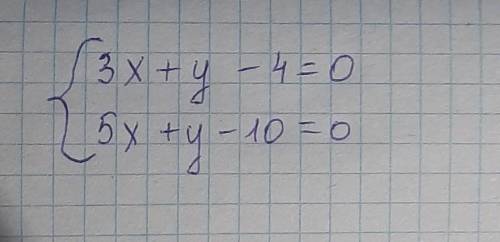 3x + y - 4 = 0
5x + y - 10 = 0